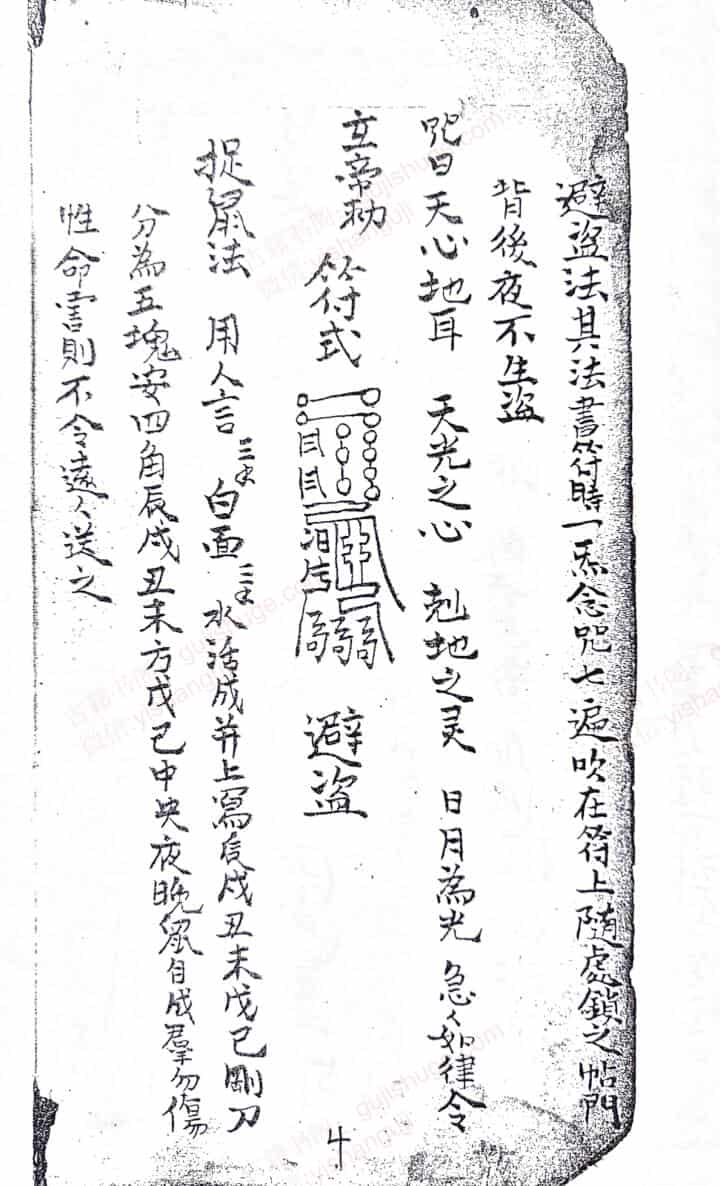 避盜法其法書符時一炁念咒七遍吹在符上隨處鎖之帖門
背後夜不生盜
咒曰天心地耳 天光之心 剋地之灵 日月為光 急〻如律令
玄帝勅 符式 避盜
捉鼠法 用人言三錢白面三錢水活成并上寫辰戌丑未戊己剛刀
分為五塊安四角辰戌丑未方戊己中央夜晚鼠自成羣勿傷
性命害則不令遠人送之
4